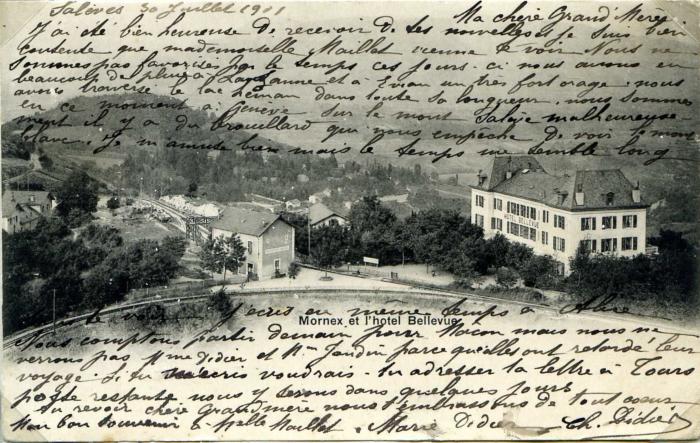 Salèves 30 Juillet 1901
Ma chère Grand'Mère
J'ai été bien heureuse de recevoir de tes nouvelles je suis bien
contente que mademoiselle Maillet vienne te voir Nous ne
sommes pas favorisés par le temps ces jours-ci nous avons eu
beaucoup de pluie à Lausanne et à Evian un très fort orage. nous
avons traversé le lac Léman dans toute sa longueur. nous sommes
en ce moment à Genève sur le mont Salève malheureuse-
ment il y a du brouillard qui nous empêche de voir le mont
blanc. Je m'amuse bien mais le temps me semble long
HOTEL BELLEVUE
de te voir. J'écris en même temps à
Mornex et l'hôtel Bellevue
Nous comptons partir demain pour Macon mais nous ne
verrons pas Mme Didier et parce qu'elles ont retardé leur
voyage. Si tu m'écris voudrais-tu adresser ta lettre à Tours
poste restante nous y serons dans quelques jours
Au revoir chère Grand mère nous t'embrassons de tout coeur
Mon bon souvenir à Melle Maillet. Marie Didier Ch. Didier